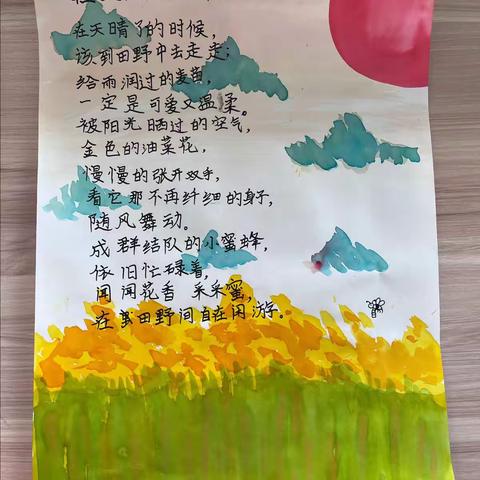 在天晴了的时候，
该到田野中去走走；
给雨润过的麦苗，
一定是可爱又温柔。
被阳光晒过的空气，
金色的油菜花，
慢慢的张开双手，
看它那不再纤细的身子，
随风舞动。
成群结队的小蜜蜂，
依旧忙碌着，
闻闻花香 采采蜜，
在田野间自在闲游。